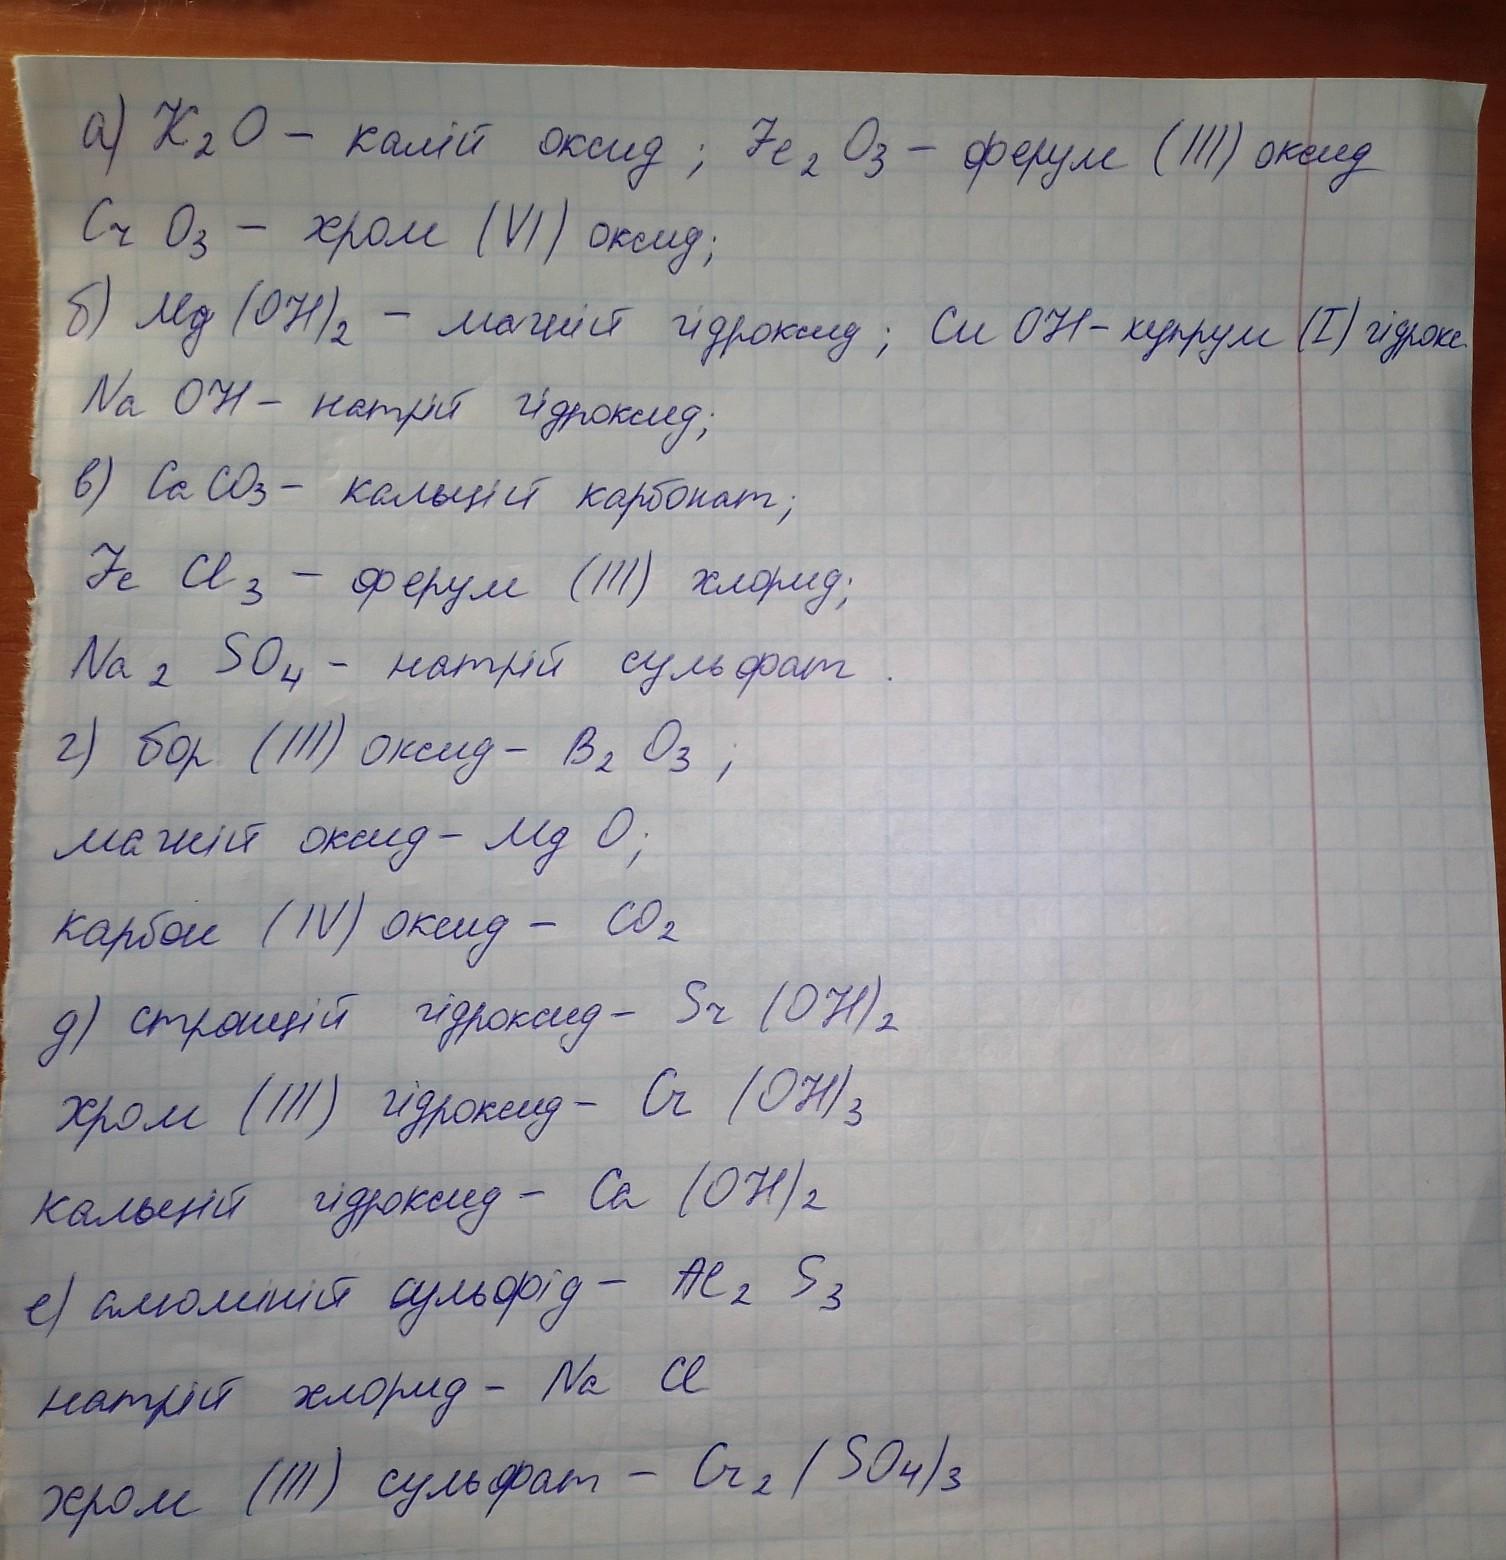 а) K₂O – калій оксид ; Fe₂O₃ – ферум (III) оксид
CrO₃ – хром (VI) оксид;
б) Mg(OH)₂ – магній гідроксид ; CuOH – купрум (I) гідрокс
NaOH – натрій гідроксид;
в) CaCO₃ – кальцій карбонат;
FeCl₃ – ферум (III) хлорид;
Na₂SO₄ – натрій сульфат .
г) бор (III) оксид – B₂O₃ ;
магній оксид – MgO;
карбон (IV) оксид – CO₂
д) стронцій гідроксид – Sr(OH)₂
хром (III) гідроксид – Cr(OH)₃
кальцій гідроксид – Ca(OH)₂
е) алюміній сульфід – Al₂S₃
натрій хлорид – NaCl
хром (III) сульфат – Cr₂(SO₄)₃